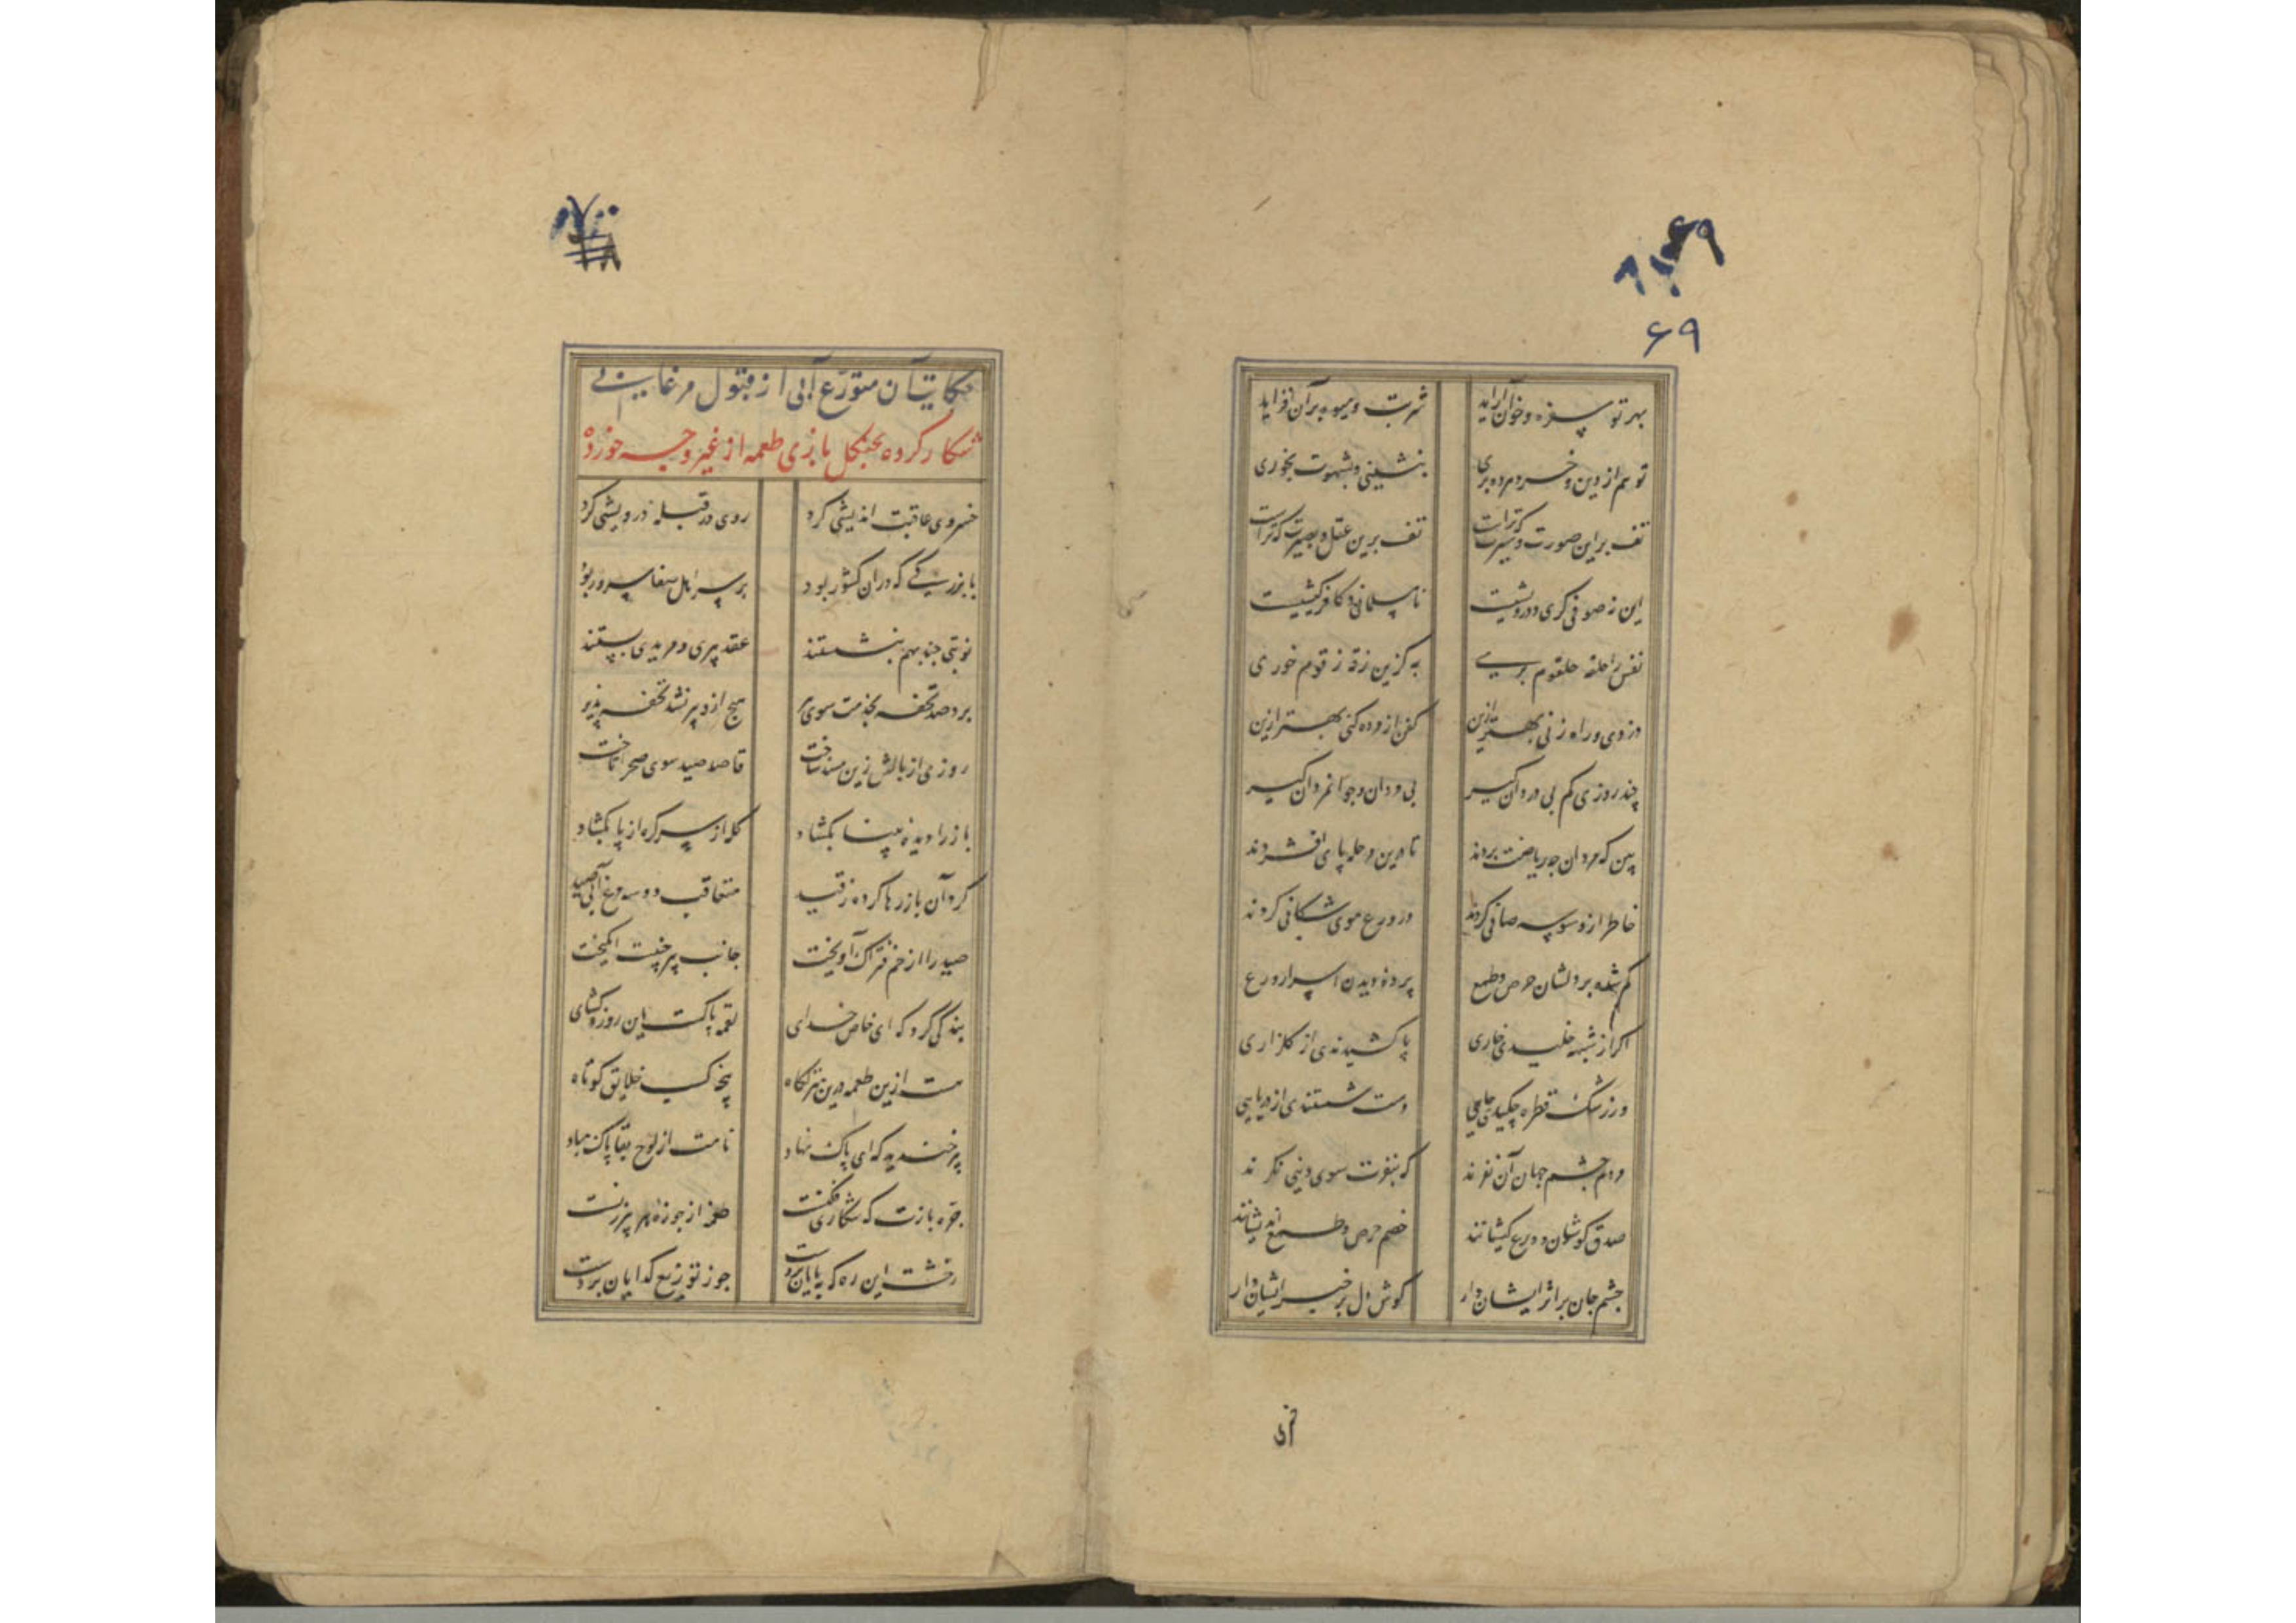 ۶۹
بهر تو سفره و خوان آراید شربت و میوه بر آن افزاید
تو هم از دین و خرد مرده بری بنشینی و بشهوت بخوری
تف بر این صورت و سیرت که تراست تف برین عقل و بصیرت که تراست
این نه صوفی گری و درویشیست نامسلمانی و کافر کیشیست
نفس را حلقه حلقوم بری به کزین زقه زقوم خوری
دزدی و راه زنی بهتر ازین کفن از مرده کنی بهتر ازین
چند روزی کم بی دردان گیر پی مردان و جوانمردان گیر
بین که مردان چه ریاضت بردند تا درین مرحله پای افشردند
خاطر از وسوسه صافی کردند در ورع موی شکافی کردند
کم شده بر دلشان حرص و طمع پرده دیدن اسرار ورع
اگر از شبهه خلیدی خاری پا کشیدندی از گلزاری
ور ز شک قطره چکیدی جایی دست شستندی از دریایی
مردم چشم جهان آن نفرند که بنفرت سوی دنیی نگرند
صدق کوشان و ورع کیشانند خصم حرص و طمع اندیشانند
چشم جان بر اثر ایشان دار گوش دل بر خبر ایشان دار
حکایت آن متورع آبی از قبول مرغابیی
شکار کرده بچنگل بازی طعمه از غیر وجه خورده
خسروی عاقبت اندیشی کرد روی در قبله درویشی کرد
با بزرگی که در آن کشور بود بر سر اهل صفا سرور بود
نوبتی چند بهم بنشستند عقد پیری و مریدی بستند
برد صد تحفه بخدمت سوی پیر هیچ ازو پیر نشد تحفه پذیر
روزی از بالش زین مسند ساخت قاصد صید سوی صحرا تاخت
باز را دیده بینا بگشاد کله از سر گره از پا بگشاد
کرد آن باز رها کرده ز قید متعاقب دو سه مرغابی صید
صید را از خم فتراک آویخت جانب پیر جنیبت انگیخت
بندگی کرد که ای خاص خدای لقمه پاکست این روزه گشای
هست ازین طعمه درین منزلگاه پنجه کسب خلایق کوتاه
پیر خندید که ای پاک نهاد نامت از لوح بقا پاک مباد
جره بازت که شکاری فکنست طعمه از جوزه هر پیرزنست
رخشت این ره که به پایان بردست جو ز توزیع گدایان بردست